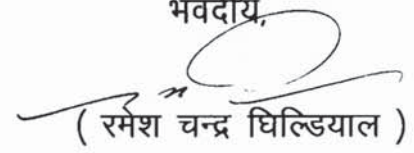 भवदीय,
( रमेश चन्द्र घिल्डियाल )